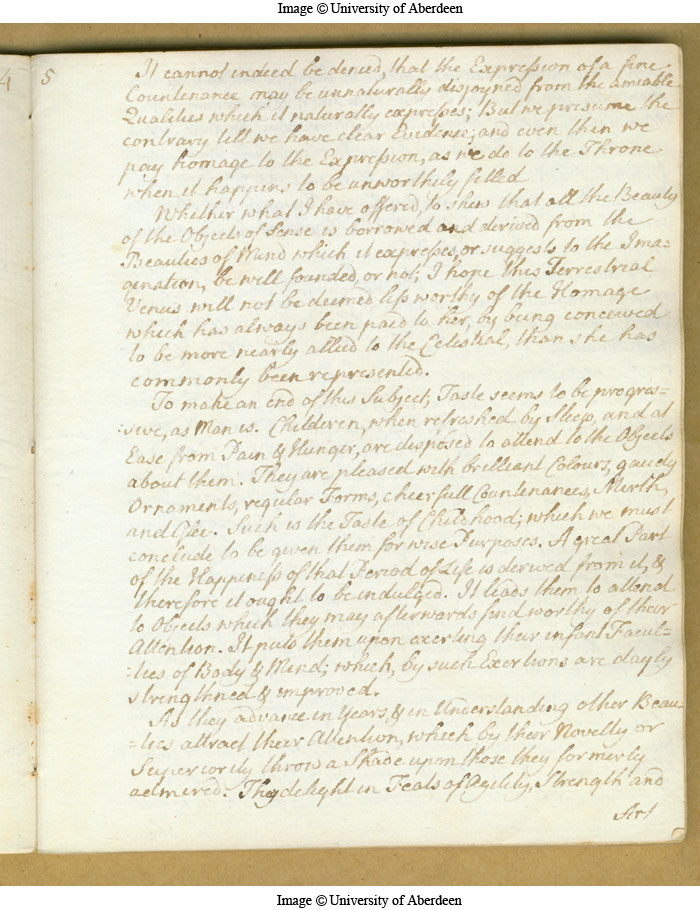 Image © University of Aberdeen
4
5
It cannot indeed be denied, that the Expression of a fine
Countenance may be unnaturally disjoyned from the amiable
Qualities which it naturally expresses; But we presume the
contrary till we have clear Evidence; and even then we
pay homage to the Expression, as we do to the Throne
when it happens to be unworthily filled
Whether what I have offered, to shew that all the Beauty
of the Objects of Sense is borrowed and derived from the
Beauties of Mind which it expresses or suggests to the Ima=
gination, be well founded, or not; I hope this Terrestrial
Venus will not be deemed less worthy of the Homage
which has always been paid to her, by being conceived
to be more nearly allied to the Celestial, than she has
commonly been represented.
To make an end of this Subject, Taste seems to be progres=
sive, as Man is. Childeren, when refreshed by Sleep, and at
Ease from Pain & Hunger, are disposed to attend to the Objects
about them. They are pleased with brilliant Colours, gaudy
Ornaments, regular Forms, cheerfull Countenances, Mirth,
and Glee. Such is the Taste of Childhood; which we must
conclude to be given them for wise Purposes. A great Part
of the Happiness of that Period of Life is derived from it, &
therefore it ought to be indulged. It leads them to attend
to Objects which they may afterwards find worthy of their
Attention. It puts them upon exerting their infant Facul=
=ties of Body & Mind; which, by such Exertions are dayly
strengthned & improved.
As they advance in Years, & in Understanding other Beau=
=ties attract their Attention, which by their Novelty or
Superiority throw a Shade upon those they formerly
admired. They delight in Feats of Agility, Strength and
Art
Image © University of Aberdeen